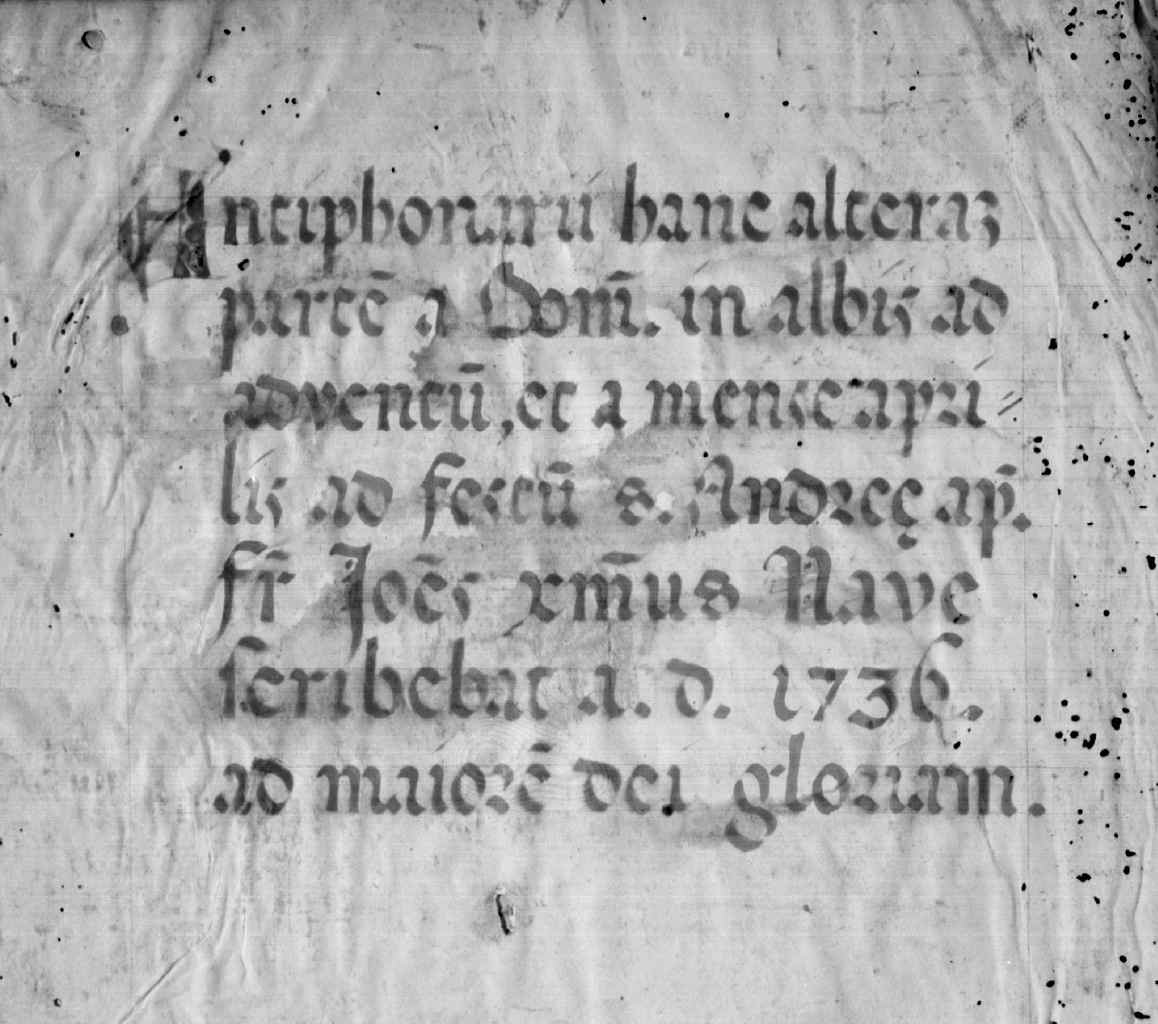 Antiphonarii hanc alteraʒ
partē a Dom̄. in albis ad
adventū, et a mense apri
lis ad festū s. Andreę ap̄.
fr̄ Joēs xm̄us Navę
scribebat a. d. 1736.
ad maiorē dei gloriam.